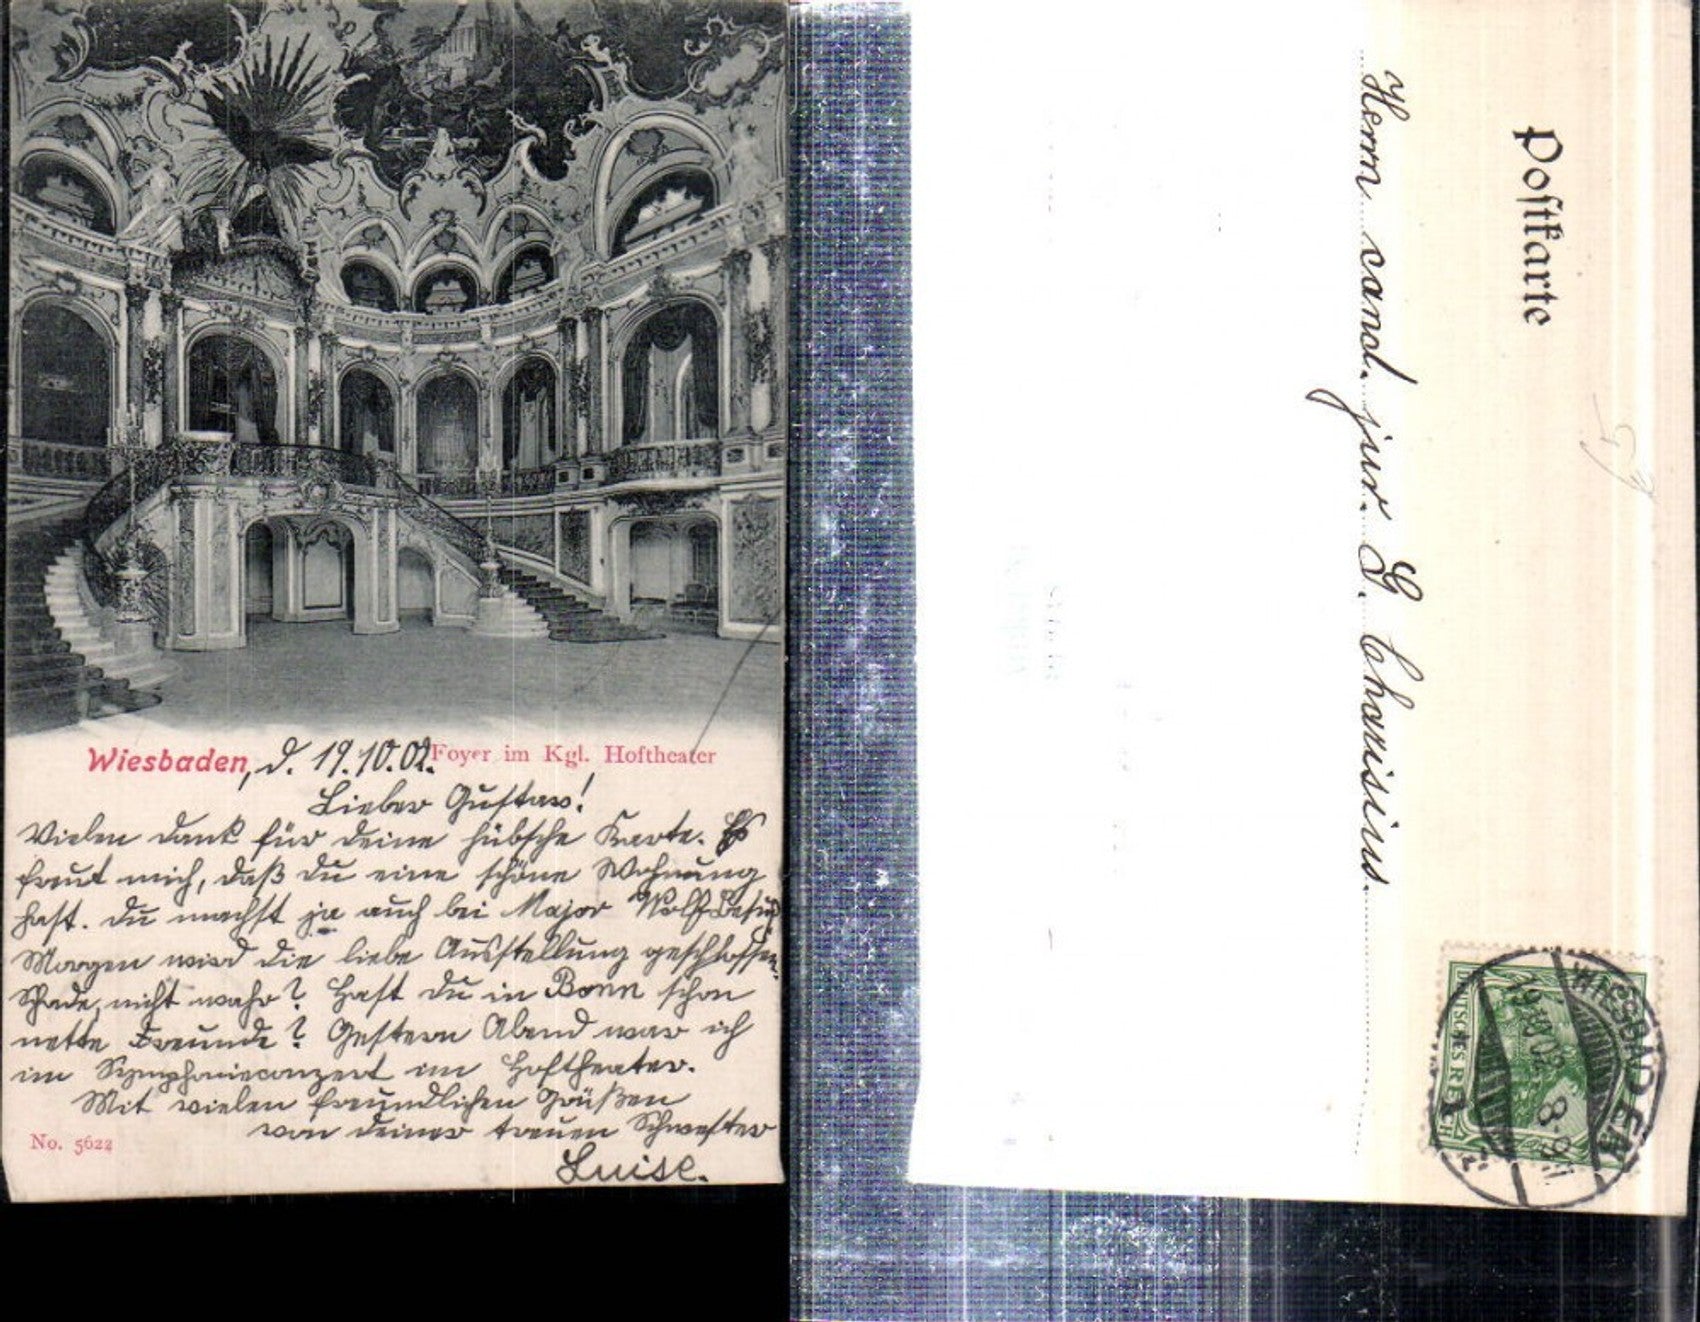 Wiesbaden, d. 19.10.02. Foyer im Kgl. Hoftheater
Lieber Gustav!
Vielen Dank für Deine hübsche Karte. Es
freut mich, daß Du eine schöne Wohnung
hast. Du machst ja auch bei Major Wolff Besuch
Morgen wird die liebe Ausstellung geschlossen.
Schade, nicht wahr? Hast Du in Bonn schon
nette Freunde? Gestern Abend war ich
im Symphonieconzert im Hoftheater.
Mit vielen freundlichen Grüßen
von Deiner treuen Schwester
Luise.
No. 5622
Postkarte
Herrn cand. jur. G. Charisius.
WIESBADEN
19.10.02. 8-9
DEUTSCHES R